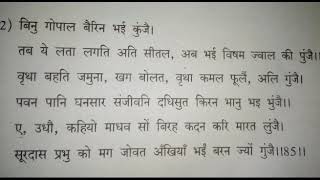 2) बिनु गोपाल बैरिन भई कुंजै।
तब ये लता लगति अति सीतल, अब भई विषम ज्वाल की पुंजै।।
वृथा बहति जमुना, खग बोलत, वृथा कमल फूलैं, अलि गुंजै।
पवन पानि घनसार संजीवनि दधिसुत किरन भानु भइ भुंजै।।
ए, उधौ, कहियो माधव सों बिरह कदन करि मारत लुंजै।
सूरदास प्रभु को मग जोवत अँखियाँ भईं बरन ज्यों गुंजै।।85।।